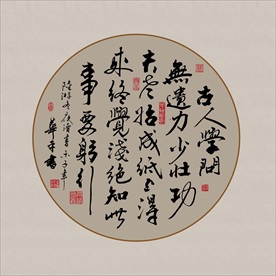 古人學問
無遺力少壯功
夫老始成紙上得
來終覺淺絕知此
事要躬行
陸游冬夜讀書示子聿
華平書